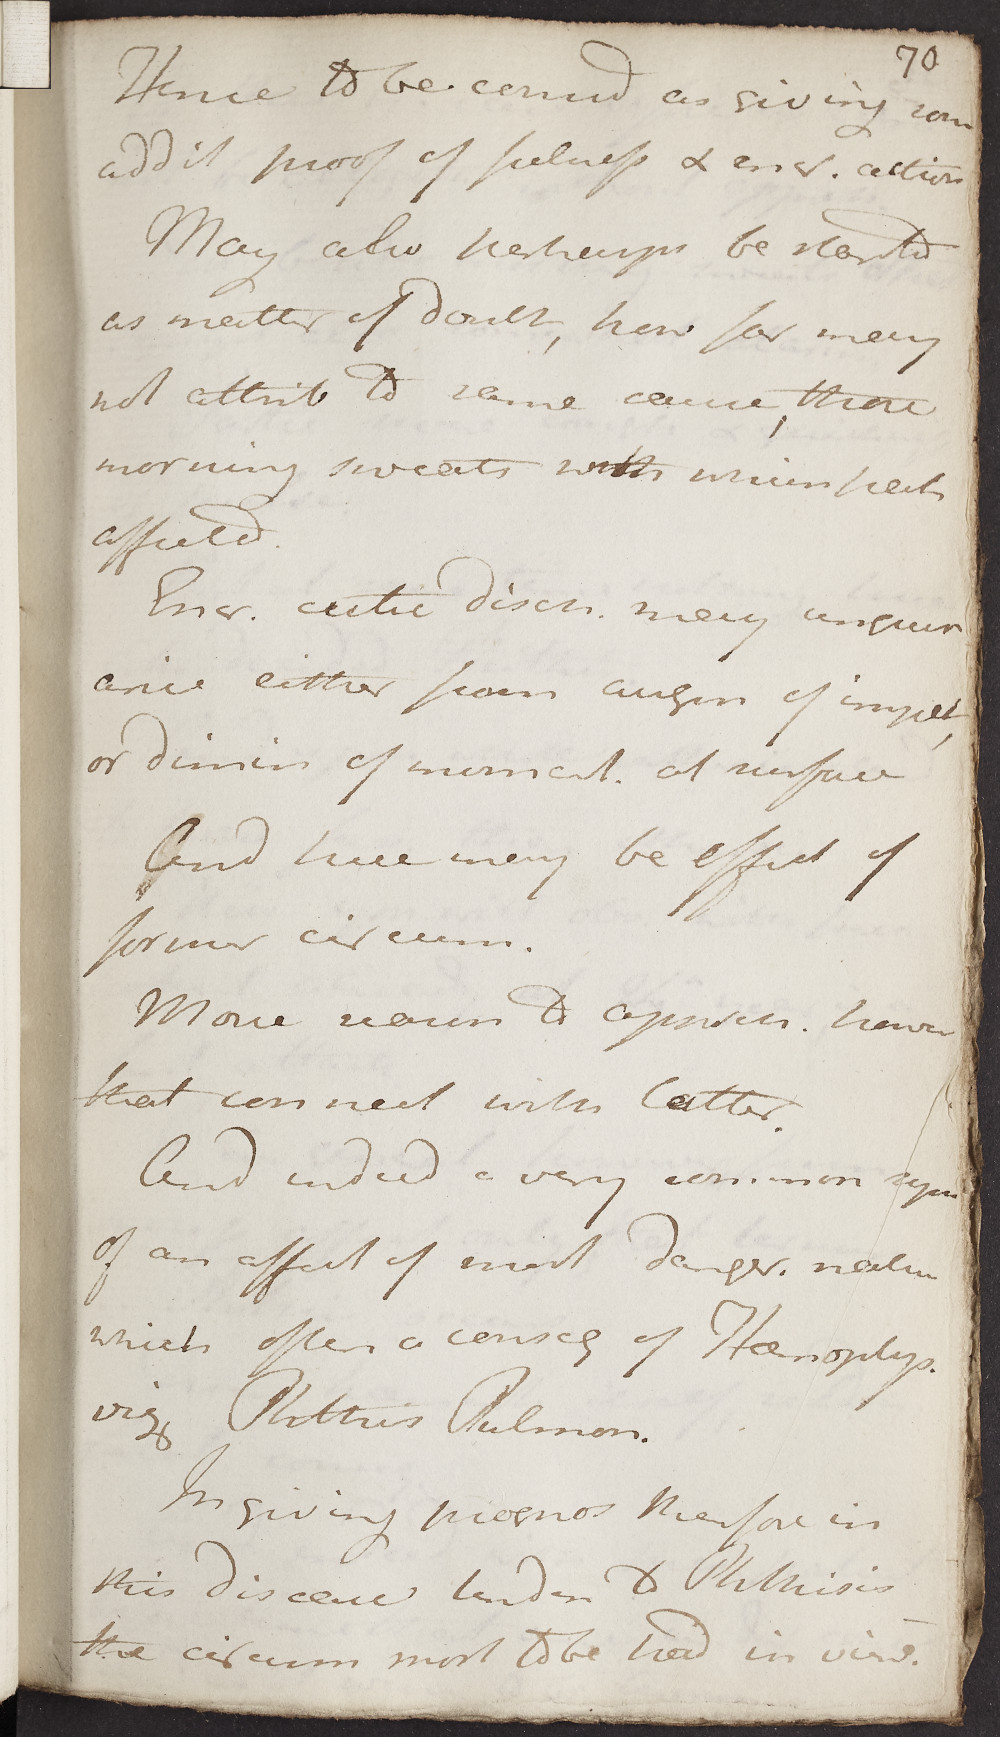 70
Hence to be consid as giving som
addit proof of fulness & encr. action
May also perhaps be started
as matter of doubt, how far may
not attrib to same cause, those
morning sweats with which pati
affected.
Encr. cutic disch. may unquer
arise either from augm of impet,
or dimin of moment. at surface
And here may be effect of
former circum.
More reason to appreh. howr
that connect with latter.
And indeed a very common sym
of an affect of most danger. natur
which often a conseq of Hæmoptys.
viz Phthisis Pulmon.
In giving prognos therefore in
this disease tenden to Phthisis
the circum most to be had in view.